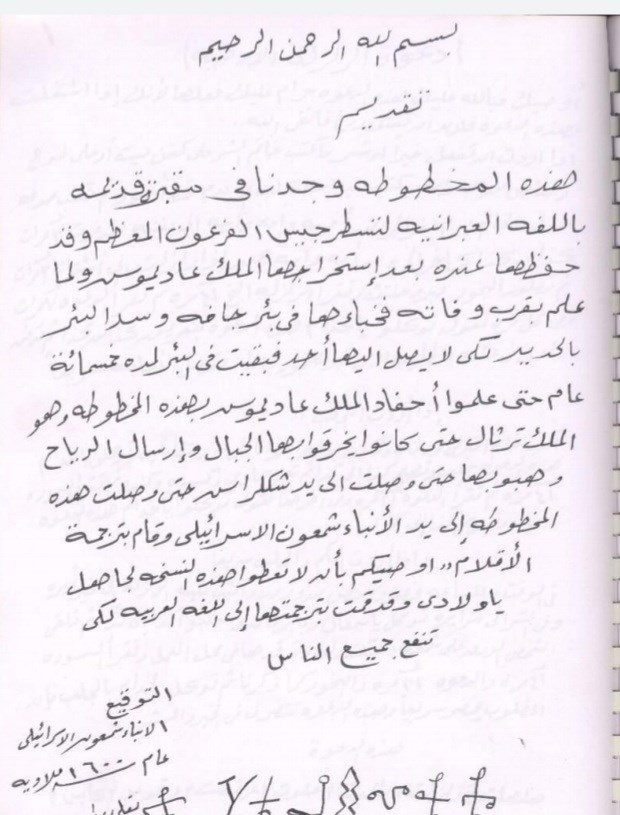 بسم الله الرحمن الرحيم
تقديم
هذه المخطوطه وجدنا في مقبره قديمه
باللغه العبرانيه لشطر جيش الفرعون المعظم وقد
حفظها عنده بعد إستخراجها الملك عاديوس ولما
علم بقرب وفاته فخباءها في بئر جافه وسد البئر
بالحديد لكي لا يصل اليها أحد فبقيت في البئر لمده خمسمائة
عام حتى علموا أحفاد الملك عاديوس بهذه المخطوطه وهو
الملك ترثال حتى كانوا يخرقوا بها الجبال وإرسال الرياح
وهبوبها حتى وصلت الى يد شكلا اسد حتى وصلت هذه
المخطوطه إلى يد الأنباء شمعون الاسرائيلى وقام بترجمة
الأقلام ,, اوصيكم بأن لا تعطوا هذه النسخه لجاهل
ياولادى وقد قمت بترجمتها إلى اللغه العربيه لكى
تنفع جميع الناس
التوقيع
الانباء شمعون الاسرائيلى
عام ١٦٠٠ ميلاديه